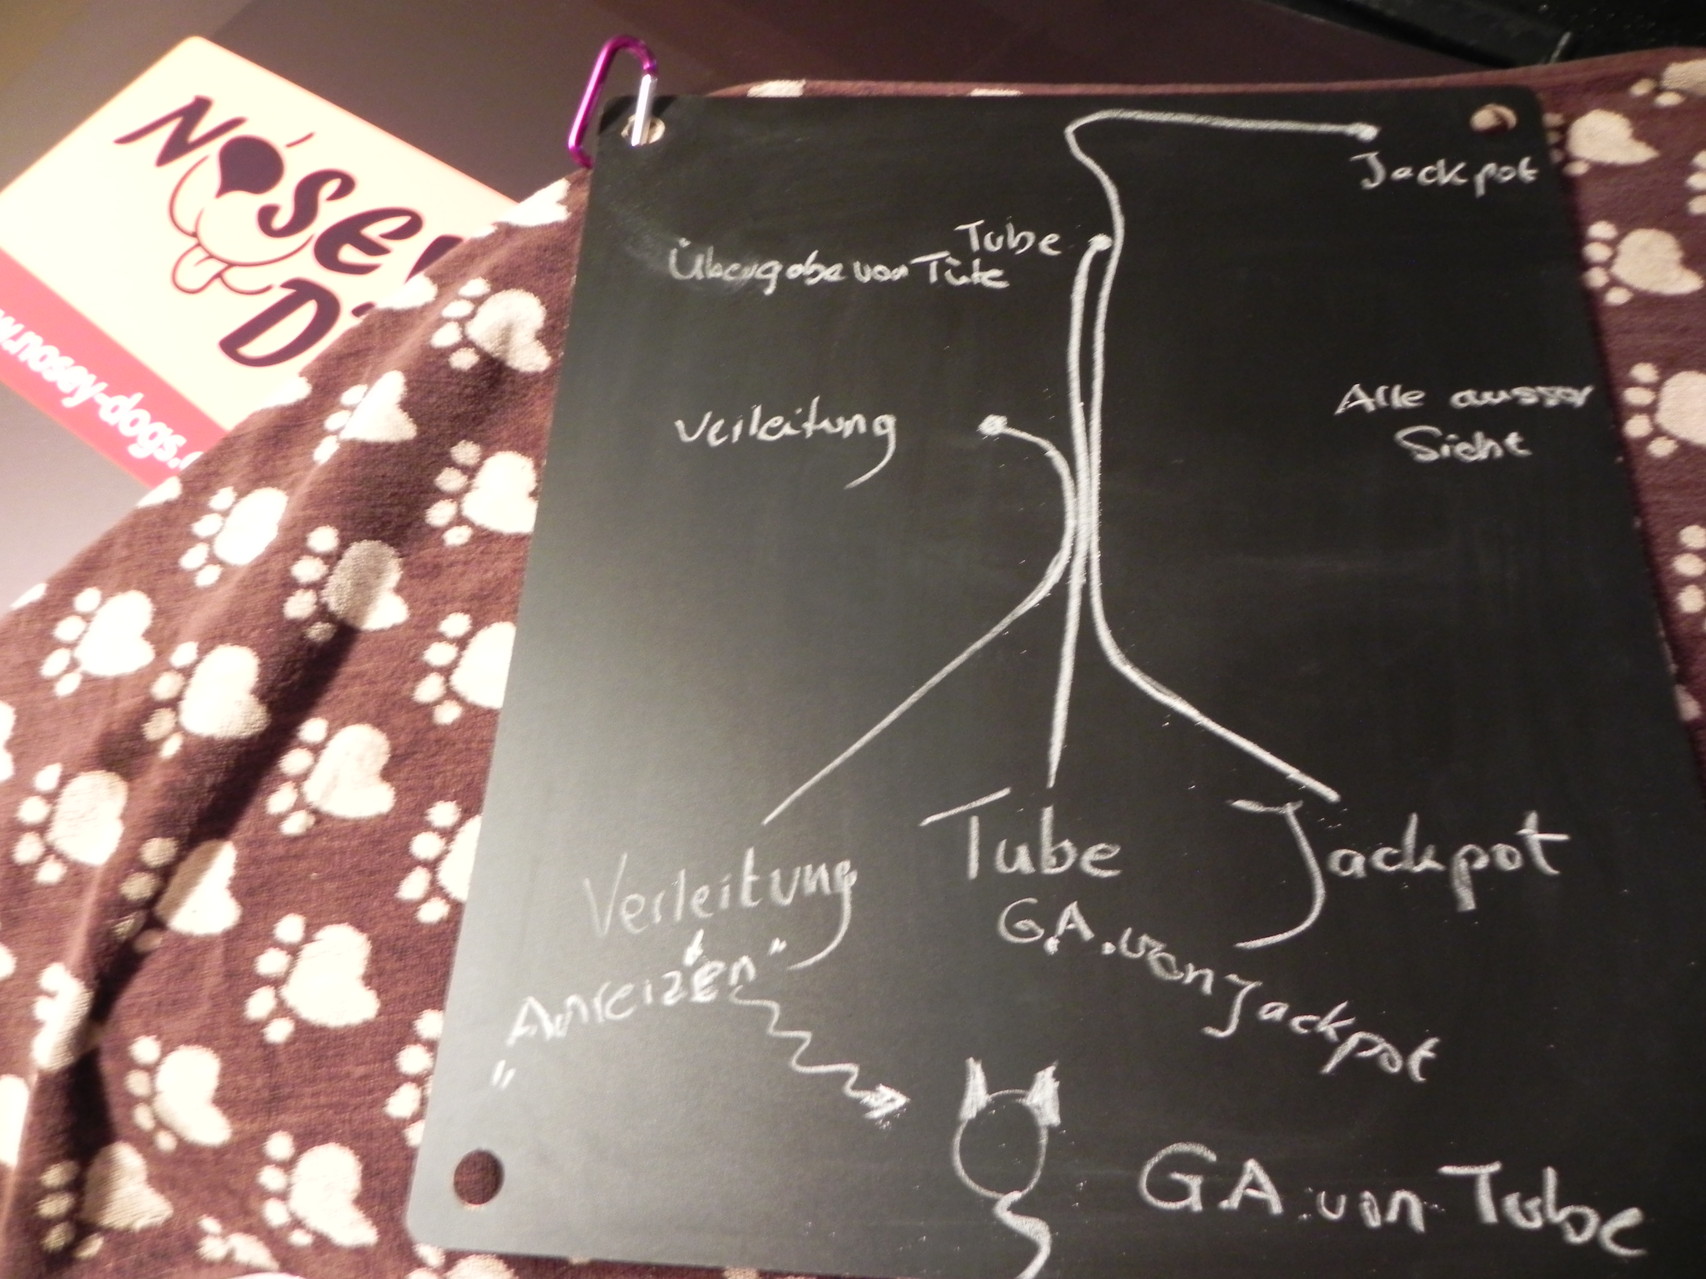 NOSEY
D
w.nosey-dogs.
Jackpot
Tube
Übergabe von Tüte
Verleitung
Alle ausser
Sicht
Verleitung
Tube
Jackpot
"Anreizen"
G.A. von Jackpot
G.A. von Tube